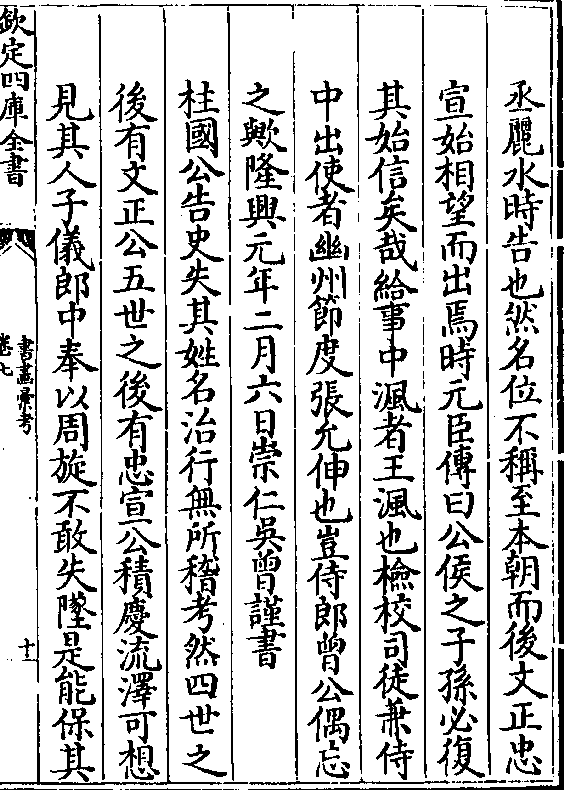 丞麗水時告也然名位不稱至本朝而後文正忠
宣始相望而出焉時元臣傳曰公侯之子孫必復
其始信矣哉給事中渢者王渢也檢校司徒兼侍
中出使者幽州節度張允伸也豈侍郎曾公偶忘
之歟隆興元年二月六日崇仁吳曾謹書
柱國公告史失其姓名治行無所稽考然四世之
後有文正公五世之後有忠宣公積慶流澤可想
見其人子儀郎中奉以周旋不敢失墜是能保其
欽定四庫全書
書畫彙考
卷七
十一